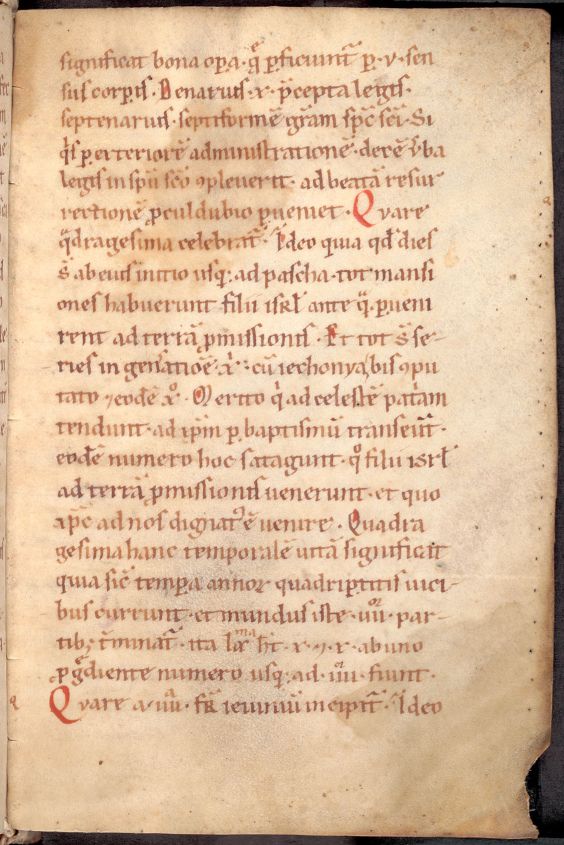 significat bona opera · q̄ p̄ficiunt̄ p̄ · v · sen
sus corp̄is · Denarius · x · p̄cepta legis ·
septenarius · septiformē gr̄am sp̄c sc̄i · Si
q̄s p exteriorē administrationē · decē v̄ba
legis in sp̄u sc̄o ꝯpleverit · ad beatā resur
rectionē ꝓcul dubio p̄veniet · Qvare
q̄dragesima celebrat̄ · Ideo quia qd̄ dies
s̄ ab eius initio usq; ad pascha · tot mansi
ones habuerunt filii isrł ante q̄ · p̄veni
rent ad terrā ꝓmissionis · Et tot s̄ se-
ries in gen̄atiōe x̄ · cū iechonya bis ꝯpu
tato ⁊ eodē x̄o · Merito q̄ ad celestē pat̄am
tendunt · ad ip̄m p baptismū transeūt ·
eodē numero hoc satagunt · qͦ filii isrł
ad terrā ꝓmissionis venerunt · et quo
ap̄c ad nos dignatꝰ ē venire · Quadra
gesima hanc temporalē vitā significat
quia sic̄ tempa annoꝝ quadriptitis vici-
bus currunt · et mundus iste · uor · par-
tibꝫ t̄minat̄ · ita lr̄a ma h̄t · x · ⁊ · x · ab uno
ꝓg̃diente numero usq; ad · iiii · fiunt ·
Qvare a · iiii · fr̄ ieiuniū incipit̄ · Ideo